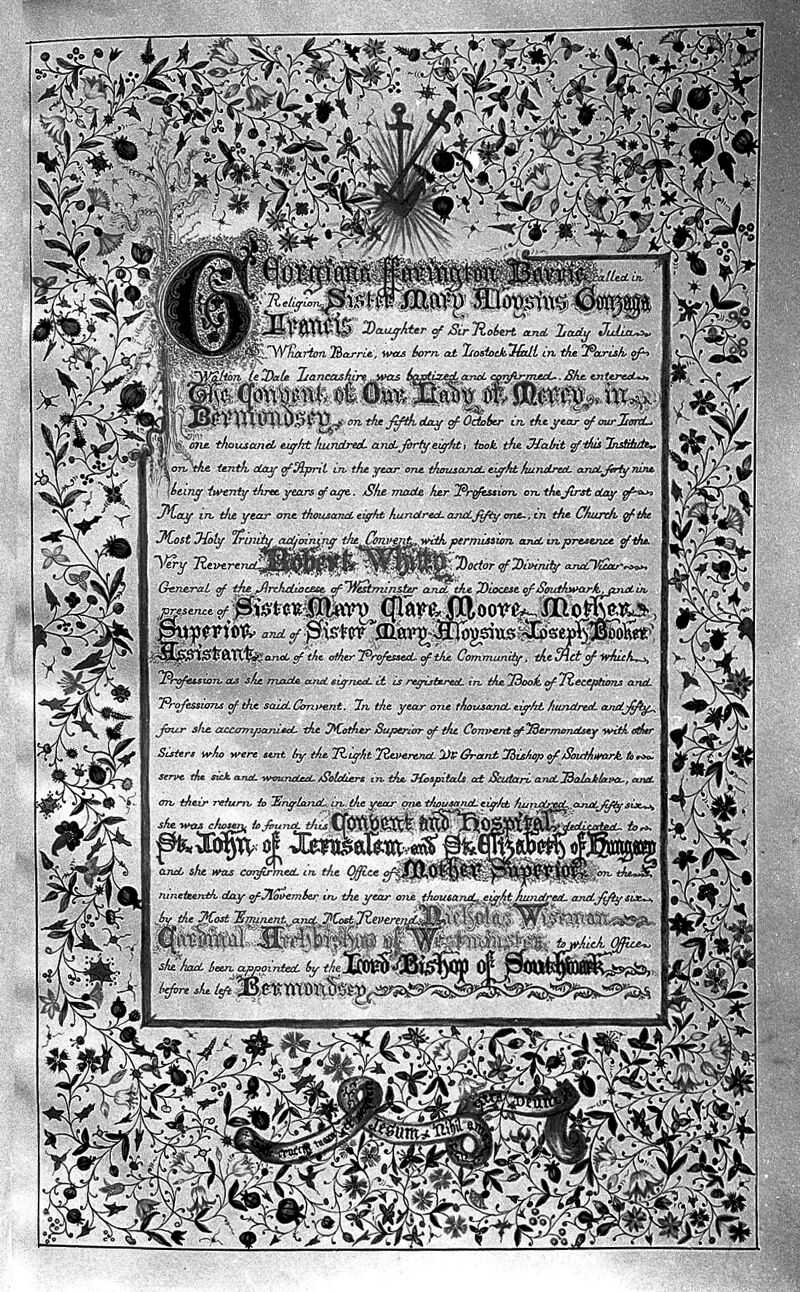 Georgiana Farington Barrie called in
Religion Sister Mary Aloysius Gonzaga
Francis Daughter of Sir Robert and Lady Julia
Wharton Barrie, was born at Lostock Hall in the Parish of
Walton le Dale Lancashire, was baptized and confirmed. She entered
The Convent of Our Lady of Mercy, in
Bermondsey, on the fifth day of October in the year of our Lord
one thousand eight hundred and forty eight; took the Habit of this Institute
on the tenth day of April in the year one thousand eight hundred and forty nine
being twenty three years of age. She made her Profession on the first day of
May in the year one thousand eight hundred and fifty one, in the Church of the
Most Holy Trinity adjoining the Convent, with permission and in presence of the
Very Reverend Robert Whitty Doctor of Divinity and Vicar
General of the Archdiocese of Westminster and the Diocese of Southwark, and in
presence of Sister Mary Clare Moore Mother
Superior and of Sister Mary Aloysius Joseph Booker
Assistant, and of the other Professed of the Community, the Act of which
Profession as she made and signed it is registered in the Book of Receptions and
Professions of the said Convent. In the year one thousand eight hundred and fifty
four she accompanied the Mother Superior of the Convent of Bermondsey with other
Sisters who were sent by the Right Reverend Dr Grant Bishop of Southwark to
serve the sick and wounded Soldiers in the Hospitals at Scutari and Balaklava, and
on their return to England in the year one thousand eight hundred and fifty six
she was chosen to found this Convent and Hospital, dedicated to
St. John of Jerusalem and St. Elizabeth of Hungary
and she was confirmed in the Office of Mother Superior on the
nineteenth day of November in the year one thousand eight hundred and fifty six
by the Most Eminent and Most Reverend Nicholas Wiseman
Cardinal Archbishop of Westminster to which Office
she had been appointed by the Lord Bishop of Southwark
before she left Bermondsey
Jesum Nihil